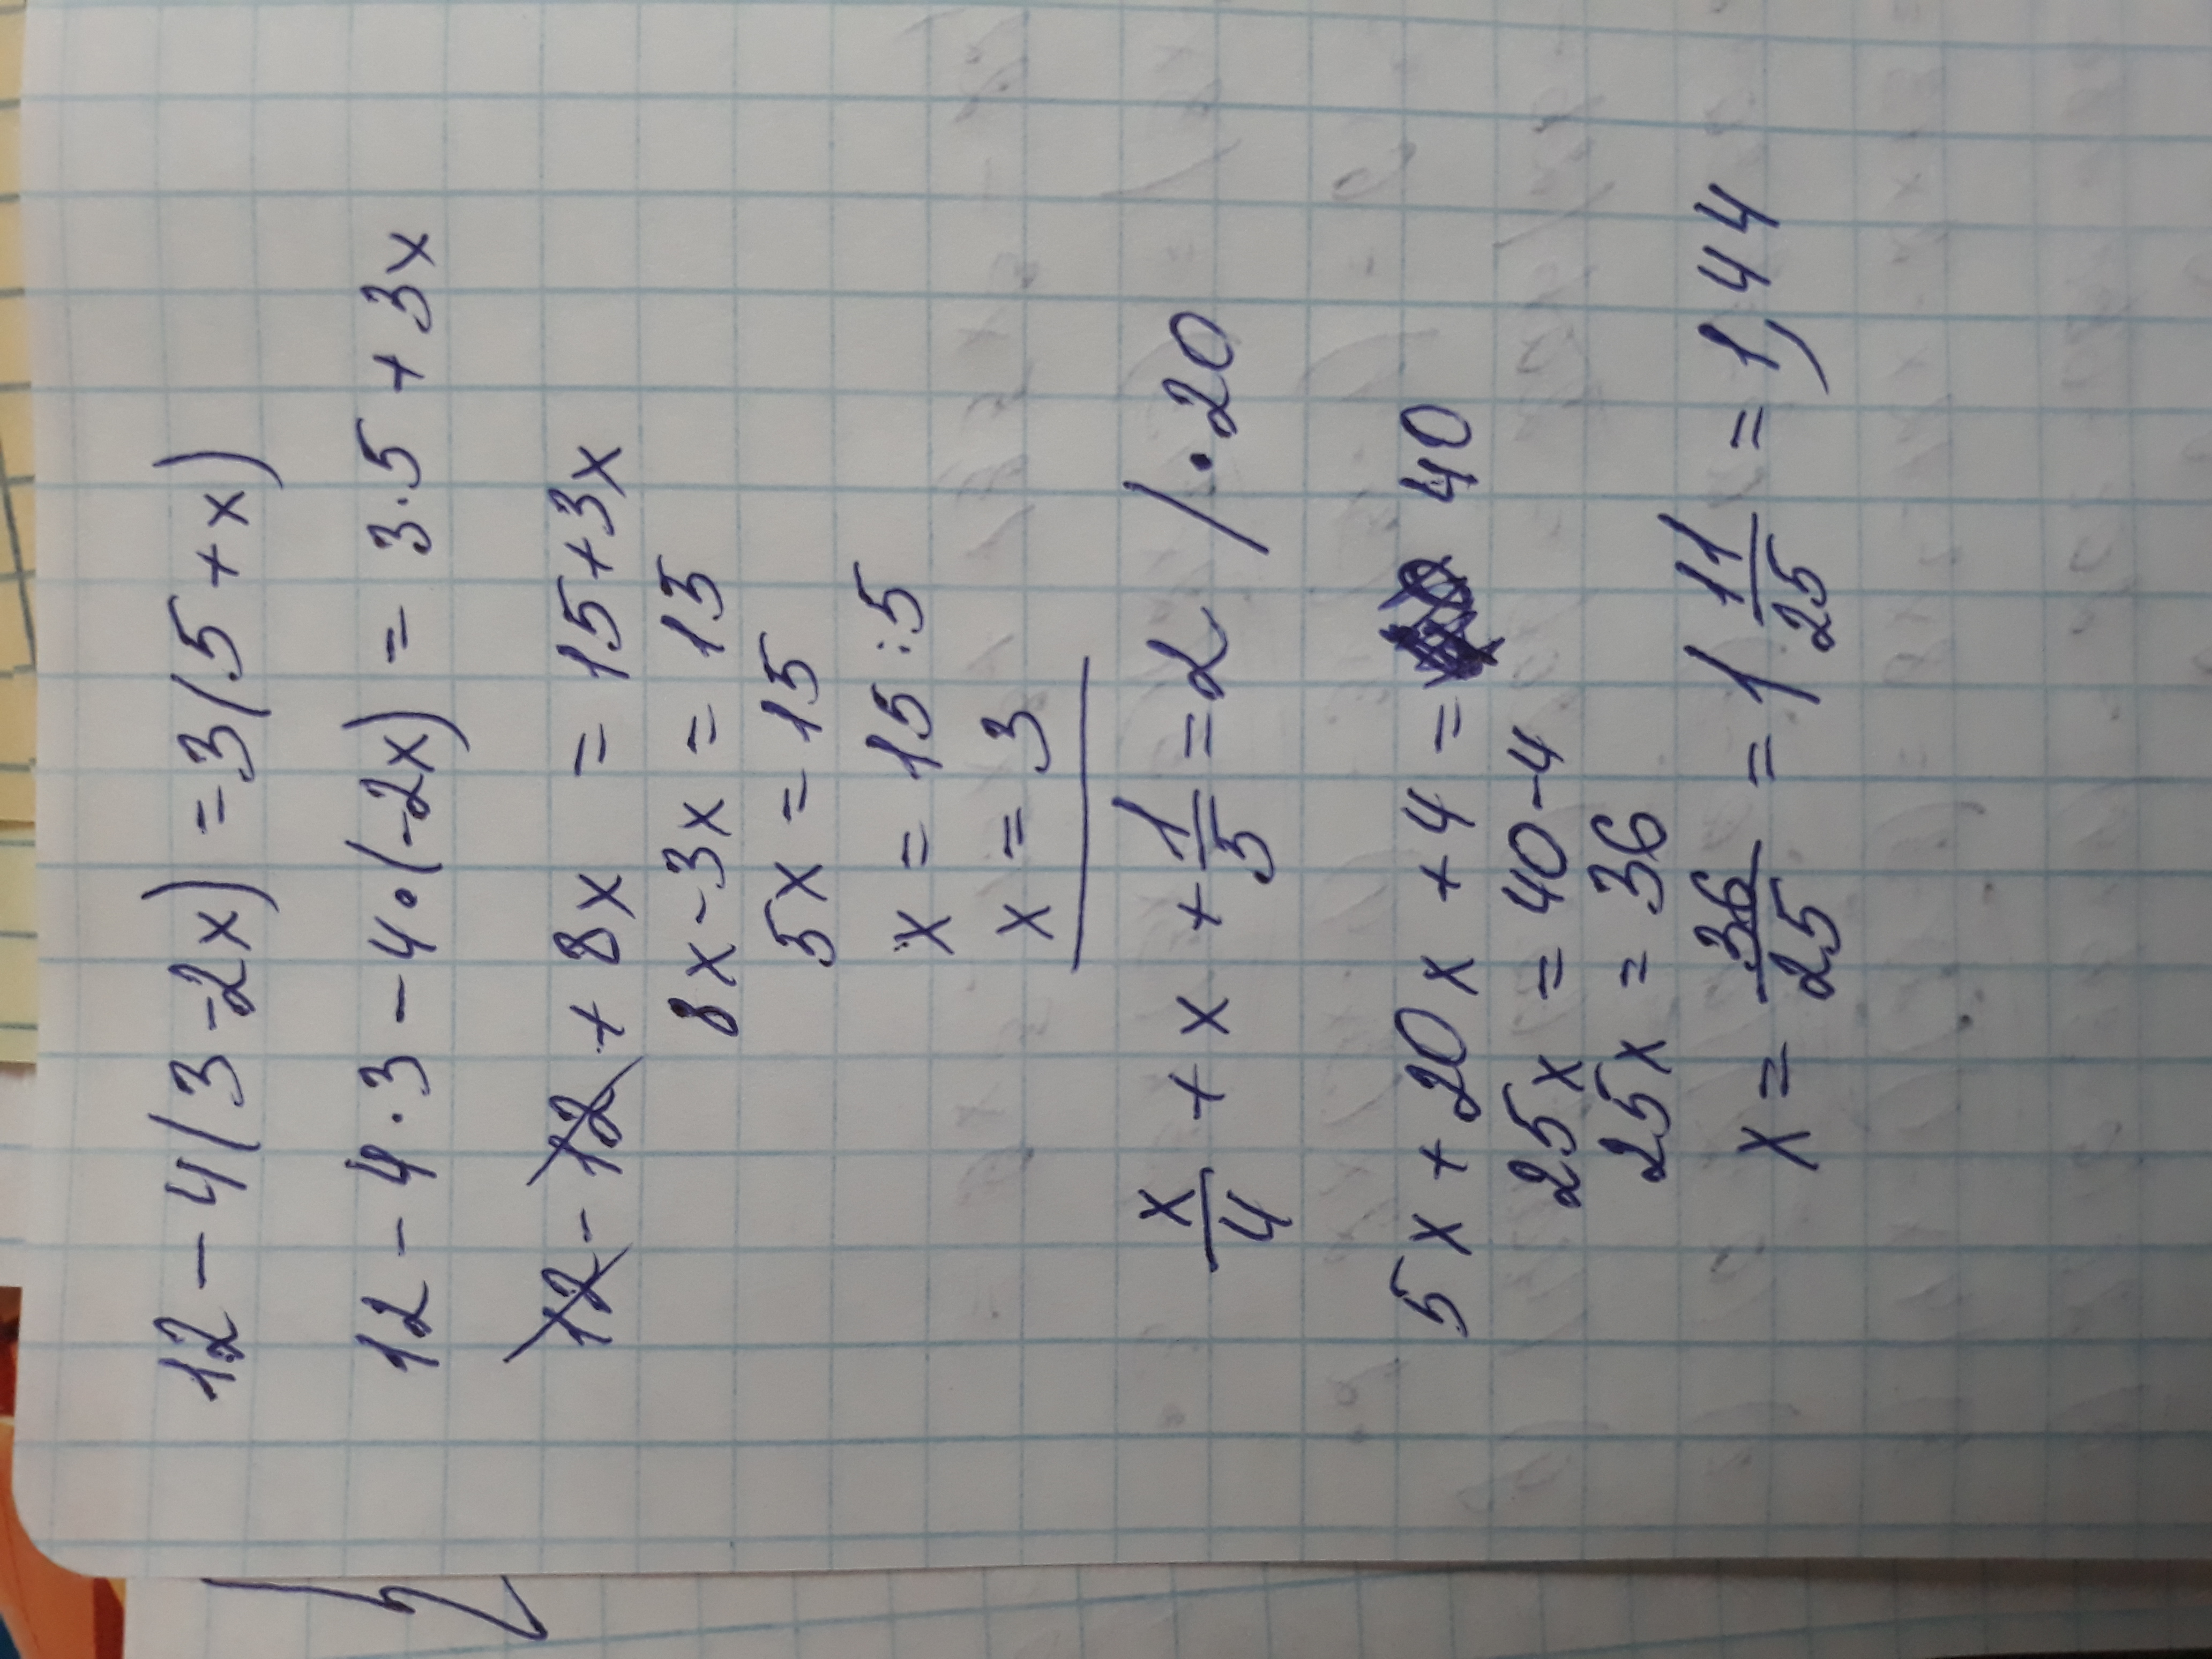 12 - 4(3 - 2x) = 3(5 + x)
12 - 4·3 - 4·(-2x) = 3·5 + 3x
12 - 12 + 8x = 15 + 3x
8x - 3x = 15
5x = 15
x = 15 : 5
x = 3
x/4 + x + 1/5 = 2 / · 20
5x + 20x + 4 = 40
25x = 40 - 4
25x = 36
x = 36/25 = 1 11/25 = 1,44